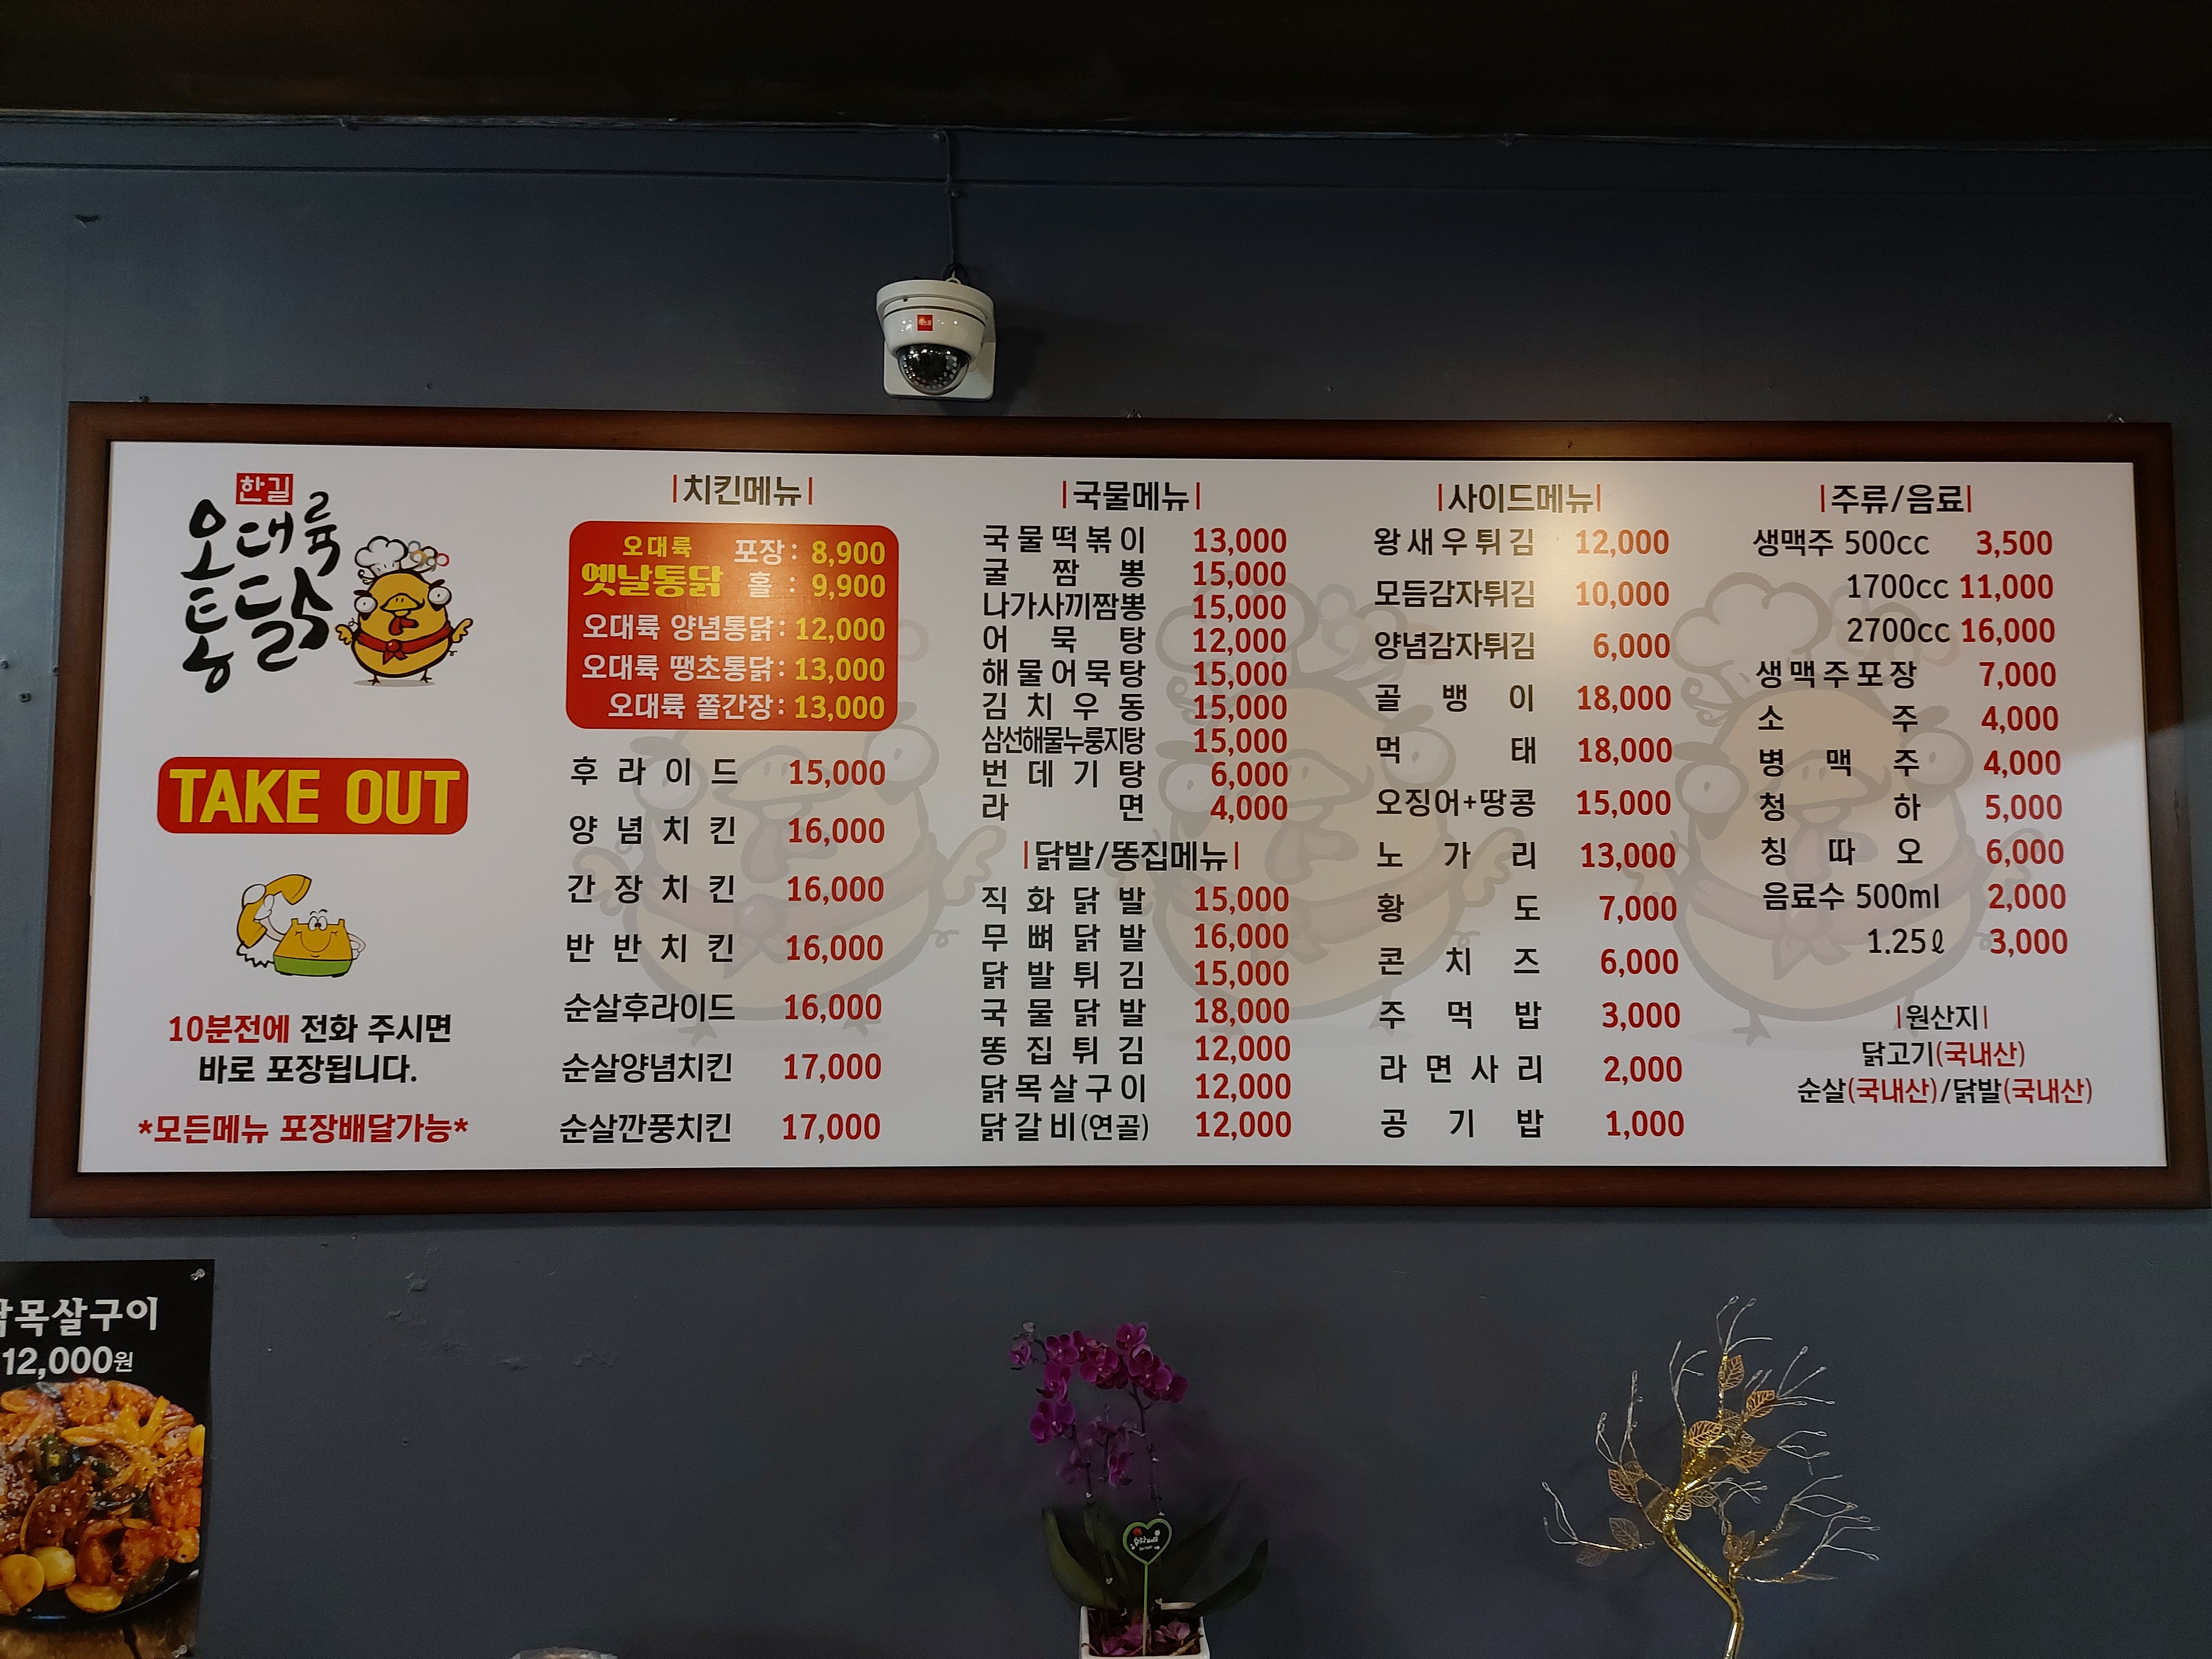 한길
오대륙
통닭
TAKE OUT
10분전에 전화 주시면
바로 포장됩니다.
*모든메뉴 포장배달가능*
|치킨메뉴|
오대륙 옛날통닭 포장 : 8,900
홀 : 9,900
오대륙 양념통닭 : 12,000
오대륙 땡초통닭 : 13,000
오대륙 쫄간장 : 13,000
후라이드 15,000
양념치킨 16,000
간장치킨 16,000
반반치킨 16,000
순살후라이드 16,000
순살양념치킨 17,000
순살깐풍치킨 17,000
|국물메뉴|
국물떡볶이 13,000
굴짬뽕 15,000
나가사끼짬뽕 15,000
어묵탕 12,000
해물어묵탕 15,000
김치우동 15,000
삼선해물누룽지탕 15,000
번데기탕 6,000
라면 4,000
|닭발/똥집메뉴|
직화닭발 15,000
무뼈닭발 16,000
닭발튀김 15,000
국물닭발 18,000
똥집튀김 12,000
닭목살구이 12,000
닭갈비(연골) 12,000
|사이드메뉴|
왕새우튀김 12,000
모듬감자튀김 10,000
양념감자튀김 6,000
골뱅이 18,000
먹태 18,000
오징어+땅콩 15,000
노가리 13,000
황도 7,000
콘치즈 6,000
주먹밥 3,000
라면사리 2,000
공기밥 1,000
|주류/음료|
생맥주 500cc 3,500
1700cc 11,000
2700cc 16,000
생맥주포장 7,000
소주 4,000
병맥주 4,000
청하 5,000
칭따오 6,000
음료수 500ml 2,000
1.25ℓ 3,000
|원산지|
닭고기(국내산)
순살(국내산)/닭발(국내산)
닭목살구이
12,000원